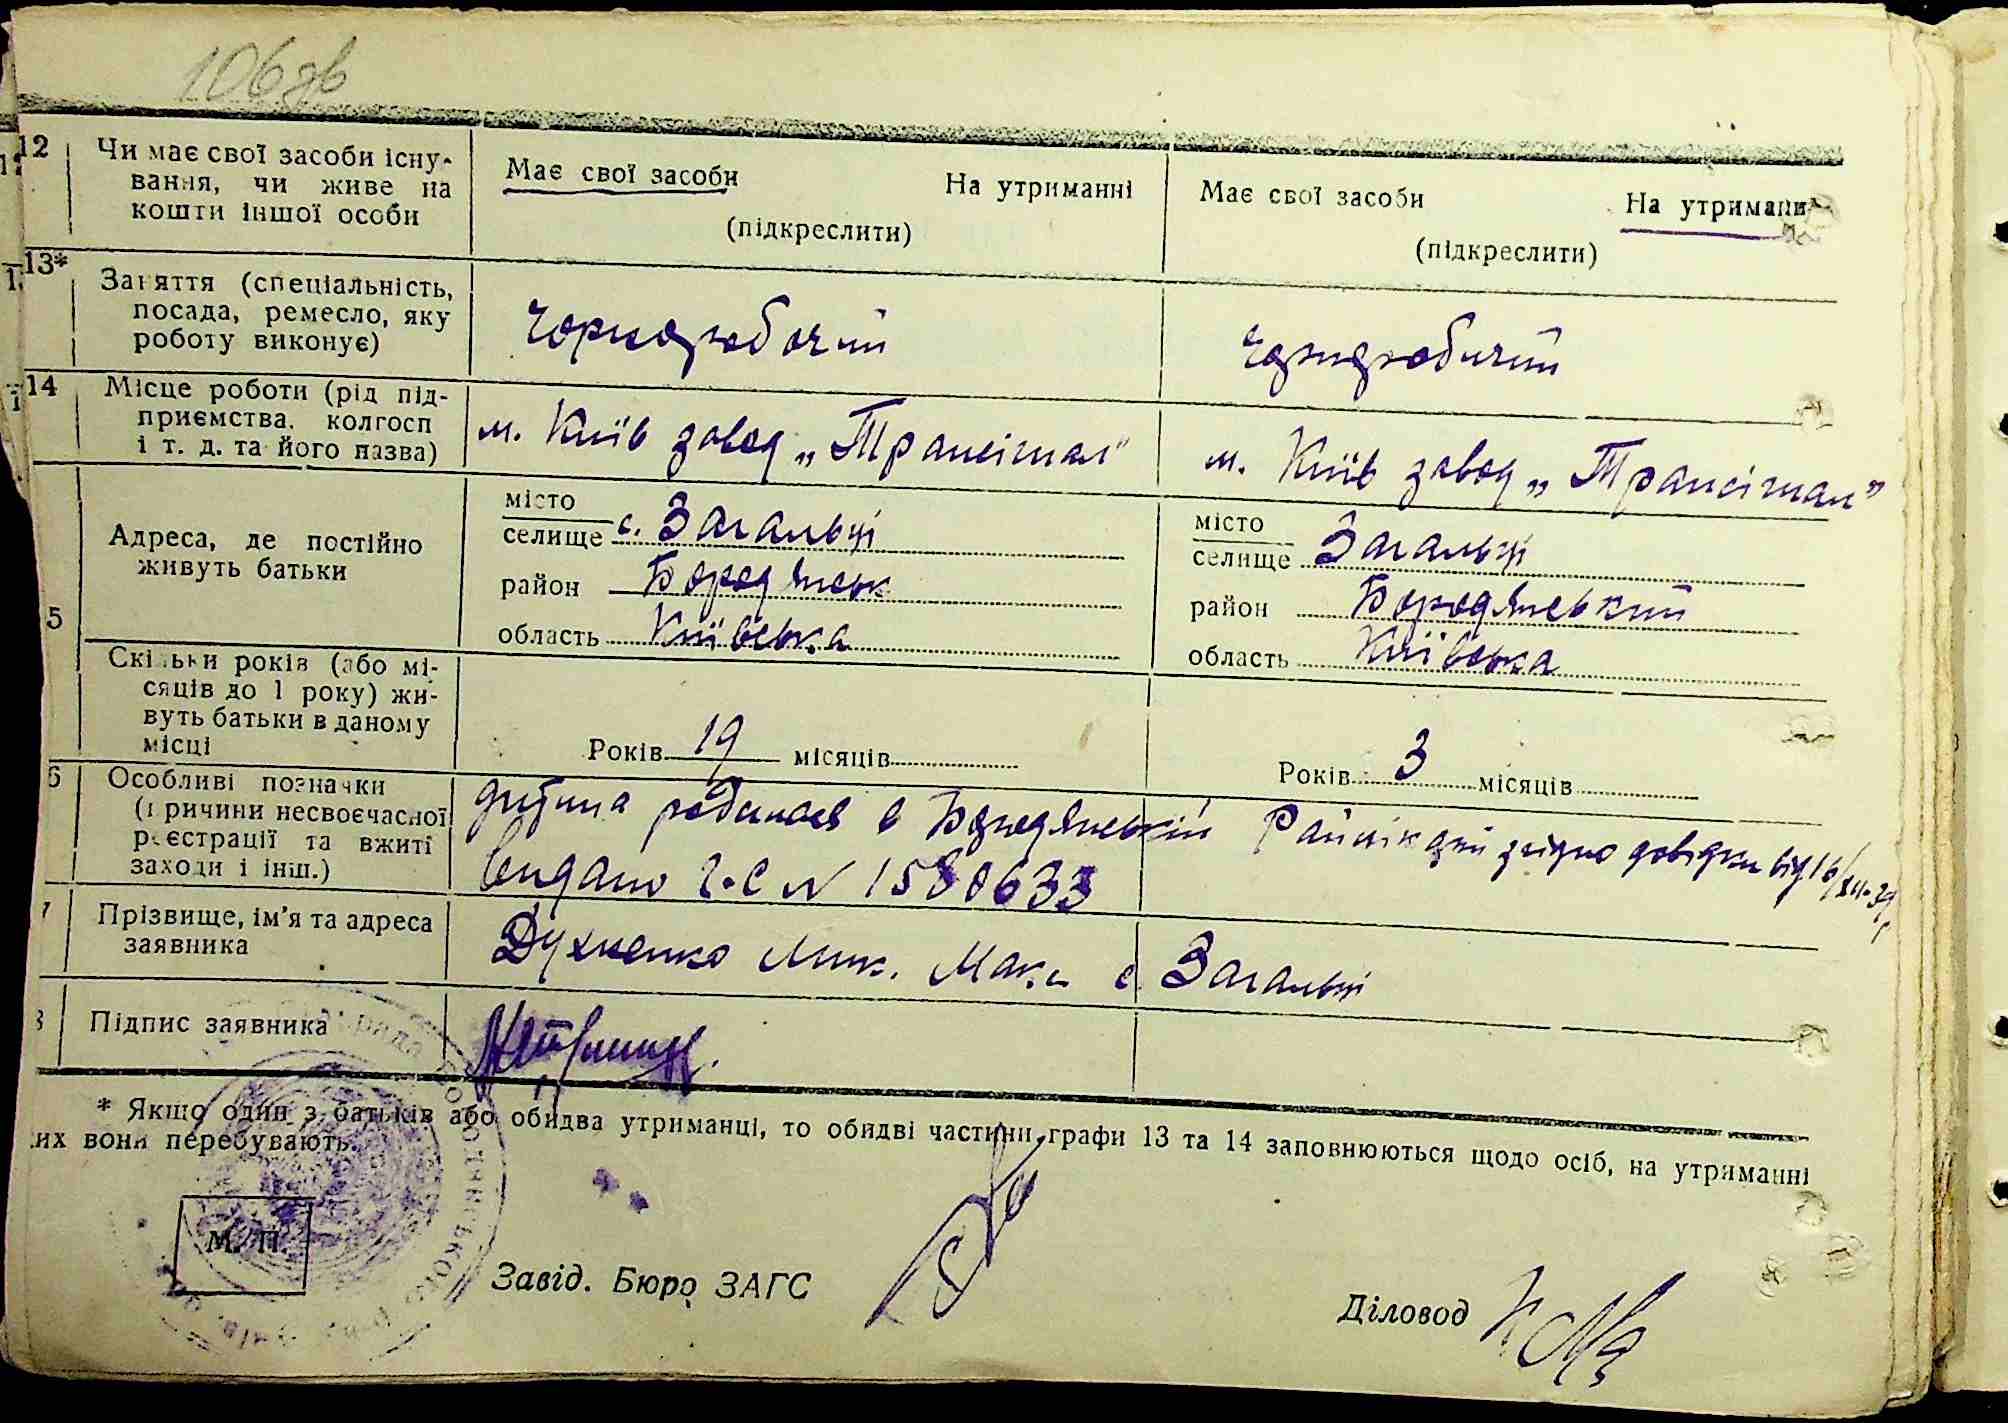 106зв
12 Чи має свої засоби існу-
вання, чи живе на
кошти іншої особи
Має свої засоби На утриманні
(підкреслити)
Має свої засоби На утриманн
(підкреслити)
13* Заняття (спеціальність,
посада, ремесло, яку
роботу виконує)
Чорноробочий
Чорноробочий
14 Місце роботи (рід під-
приємства, колгосп
і т. д. та його назва)
м. Київ завод „Трансігнал"
м. Київ завод „Трансігнал"
5 Адреса, де постійно
живуть батьки
місто
селище с. Загальці
район Бородянськ
область Київська
місто
селище Загальці
район Бородянський
область Київська
Скільки років (або мі-
сяців до 1 року) жи-
вуть батьки в даному
місці
Років 19 місяців
Років 3 місяців
6 Особливі позначки
(причини несвоєчасної
реєстрації та вжиті
заходи і інш.)
дитина родилась в Бородянській Райлікарні згідно довідки від 16/XII-39
Видано 2·С № 1580633
7 Прізвище, ім'я та адреса
заявника
Духненко Мик. Мак. с. Загальці
8 Підпис заявника
* Якщо один з батьків або обидва утриманці, то обидві частини графи 13 та 14 заповнюються щодо осіб, на утриманні
их вони перебувають.
М. П.
Завід. Бюро ЗАГС
Діловод